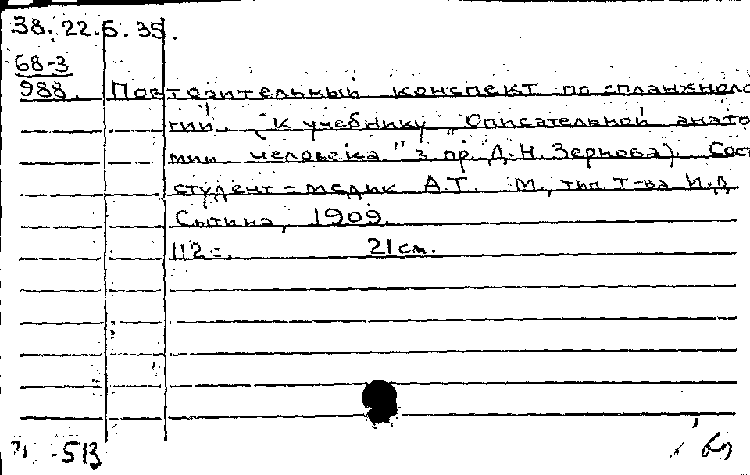 38.22.5.35.
68-3
988. Повторительный конспект по спланхноло
гии. (К учебнику "Описательной анато
мии человека" з. пр. Д.Н. Зернова). Сос
студент-медик А.Т. М., тип. Т-ва И.Д.
Сытина, 1909.
112 с. 21 см.
513